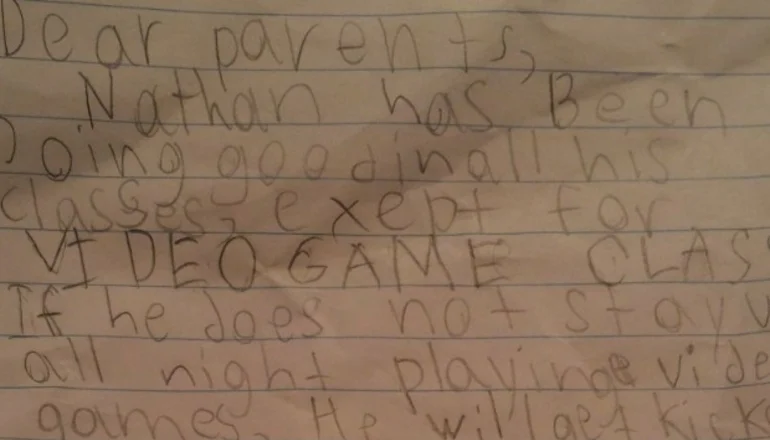 Dear parents,
Nathan has Been
Doing good in all his
classes, exept for
VIDEO GAME CLAS
If he does not stay u
all night playing vide
games. He will get kick